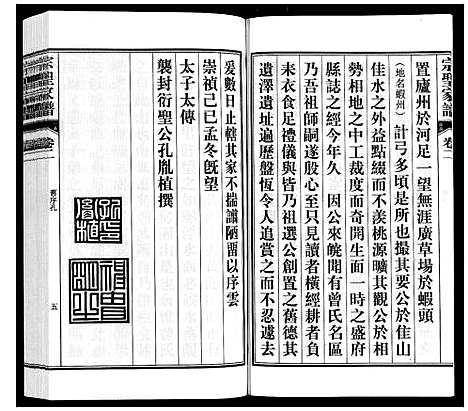 宗聖志家譜
卷二
置廬州於河足一望無涯廣草場於蝦頭
（地名蝦州）計弓多頃是所也撮其要公於佳山
佳水之外益點綴而不羨桃源曠其觀公於相
勢相地之中工裁度而奇開生面一時之盛府
縣誌之經今年久 因公來皖開有曾氏名區
乃吾祖師嗣遂殷心至只見讀者橫經耕者負
耒衣食足禮儀興皆乃祖選公創置之舊德其
遺澤遺址遍歷盤恆令人追賞之而不忍遽去
爰數日止轄其家不揣譾陋畱以序雲
崇禎己巳孟冬旣望
太子太傳
襲封衍聖公孔胤植撰
舊序孔
五